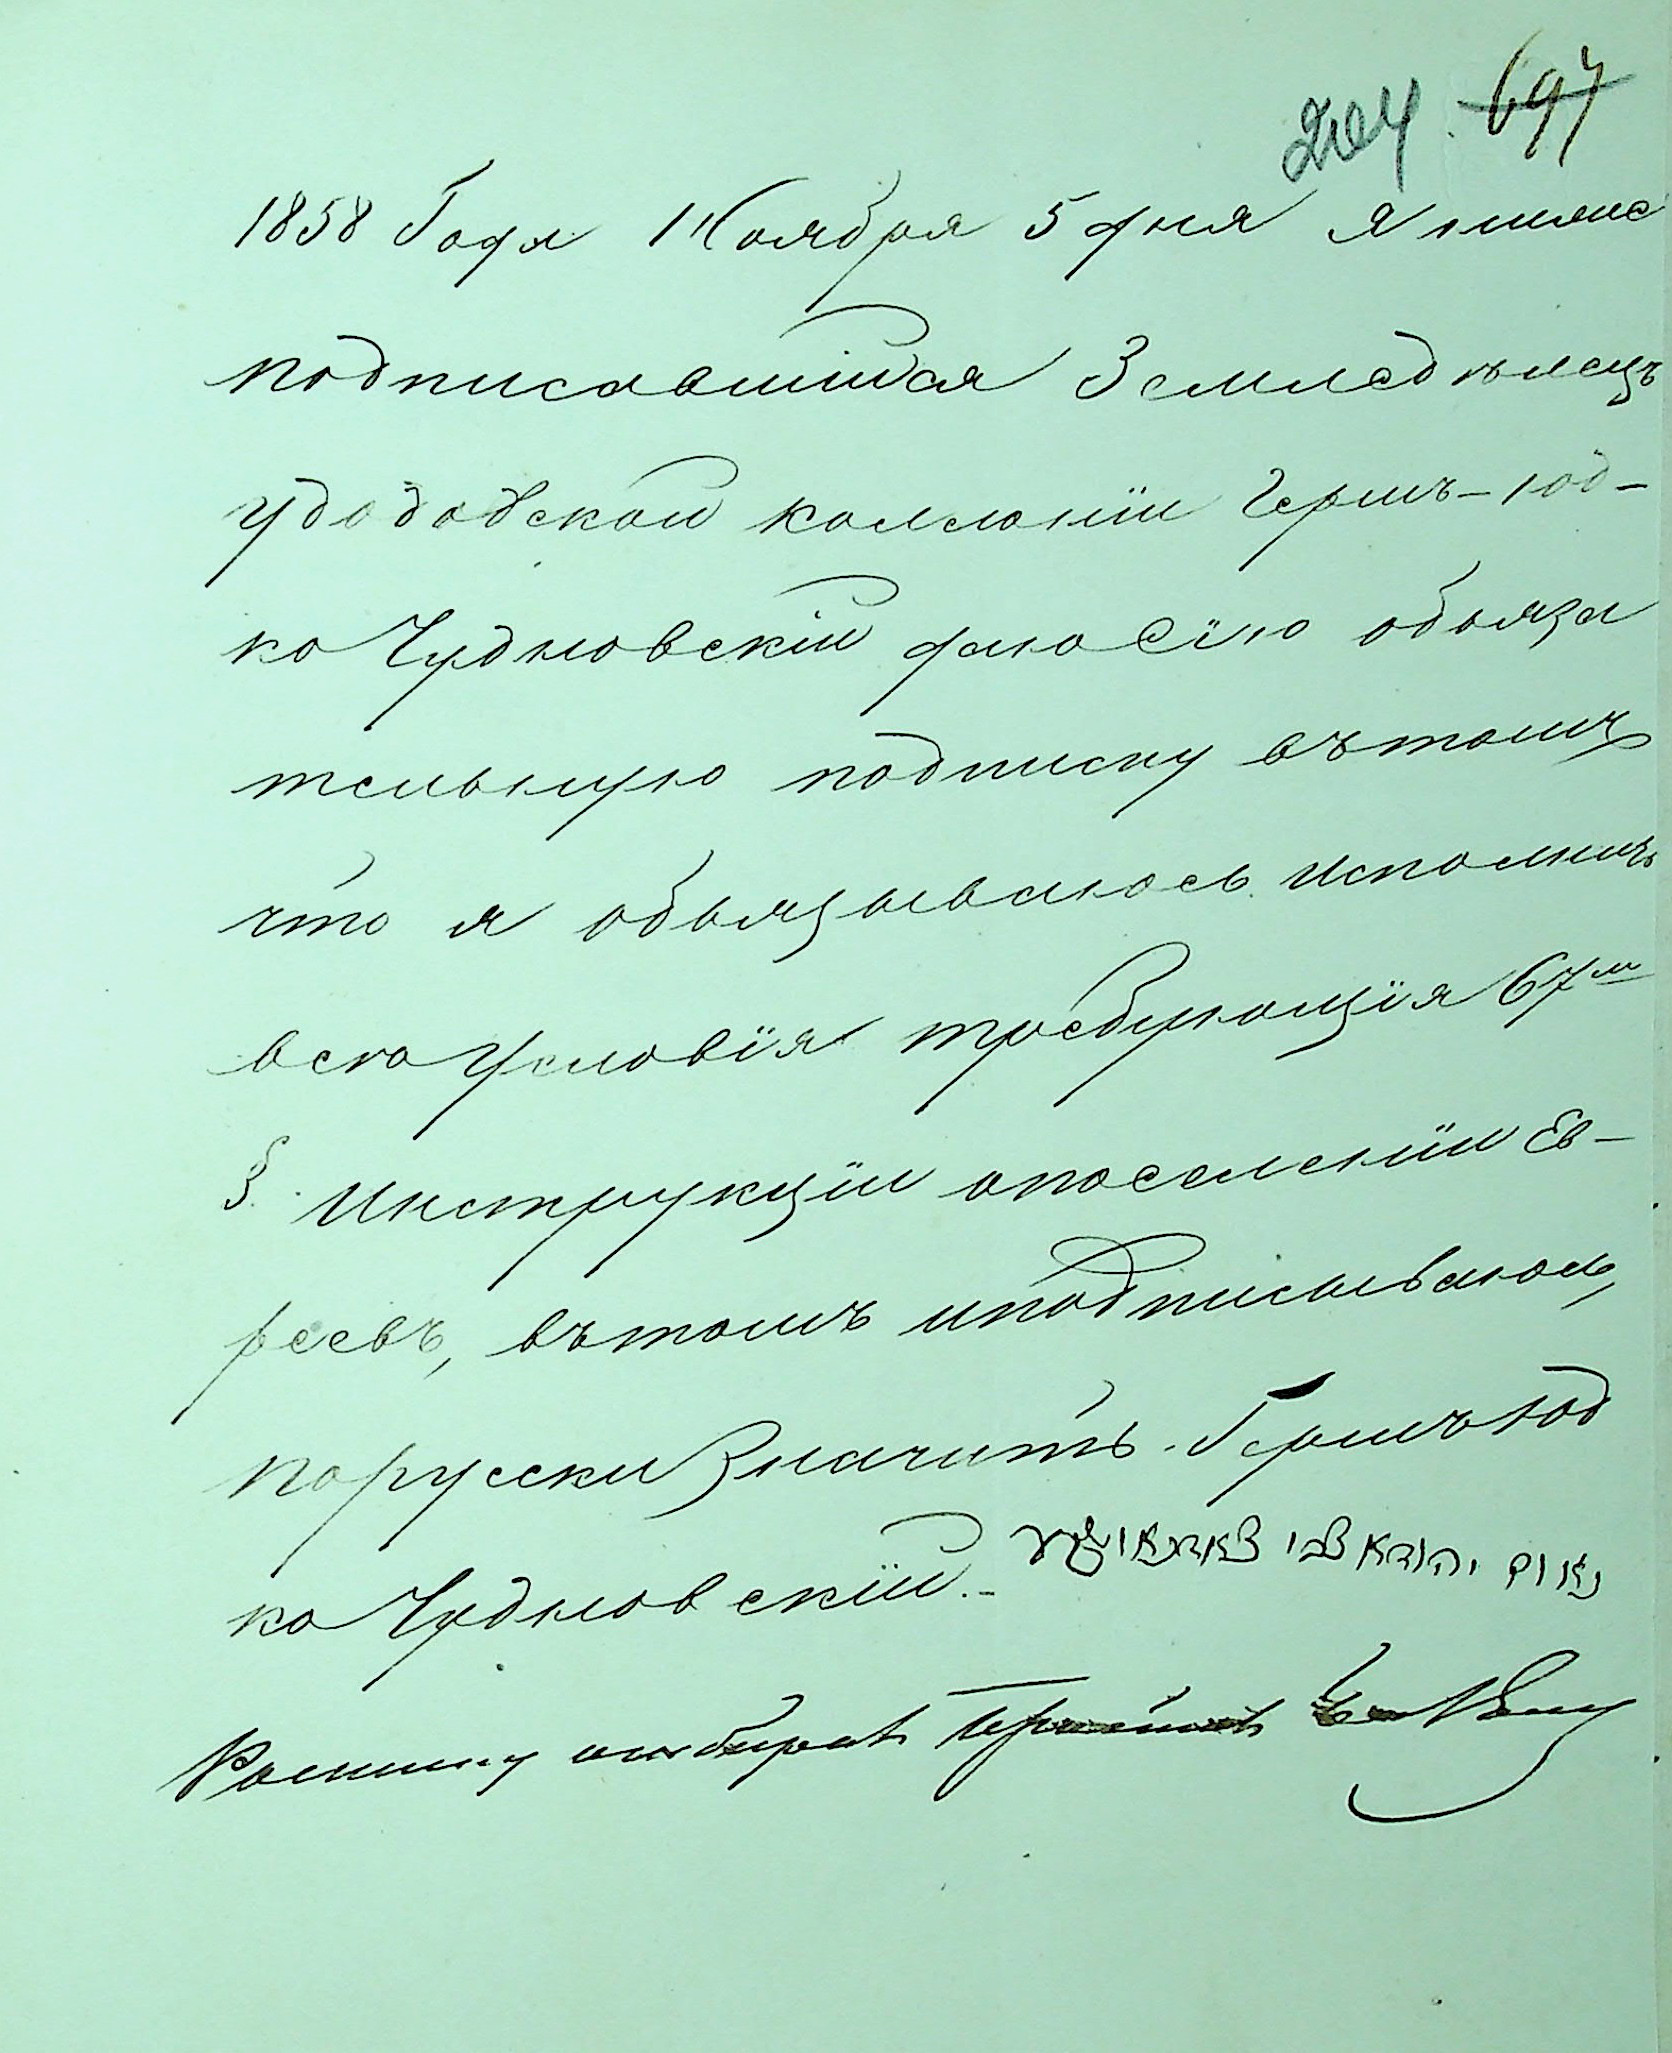 204 697
1858 Года Ноября 5 дня я ниже
подписавшійся Земледѣлецъ
Удобобской коллоніи Гершъ-Юд-
ко Чудновскій даю Сію обьяза
тельную подписку въ томъ
что я обьязываюсь исполнить
все условія требующія 67м
§. Инструкціи о поселеніи Ев-
реевъ, въ томъ и подписываюсь,
по русски Значитъ. Гершъ Юд
ко Чудновскій.-
נאום יהודא צבי
отбиралъ